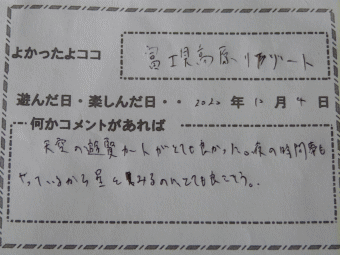 よかったよココ
富士見高原リゾート
遊んだ日・楽しんだ日・・ 2020 年 12 月 4 日
何かコメントがあれば
天空の遊覧カートがとても良かった。夜の時間帯も
やっているから星をみるのにとても良さそう。